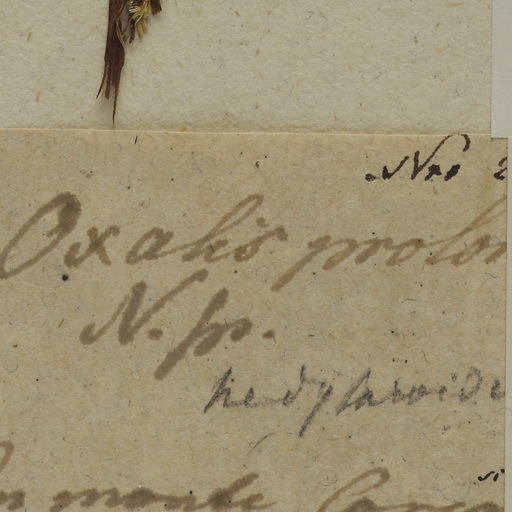 Nro 2
Oxalis prolon
N. sp.
hedysaroide
In monte